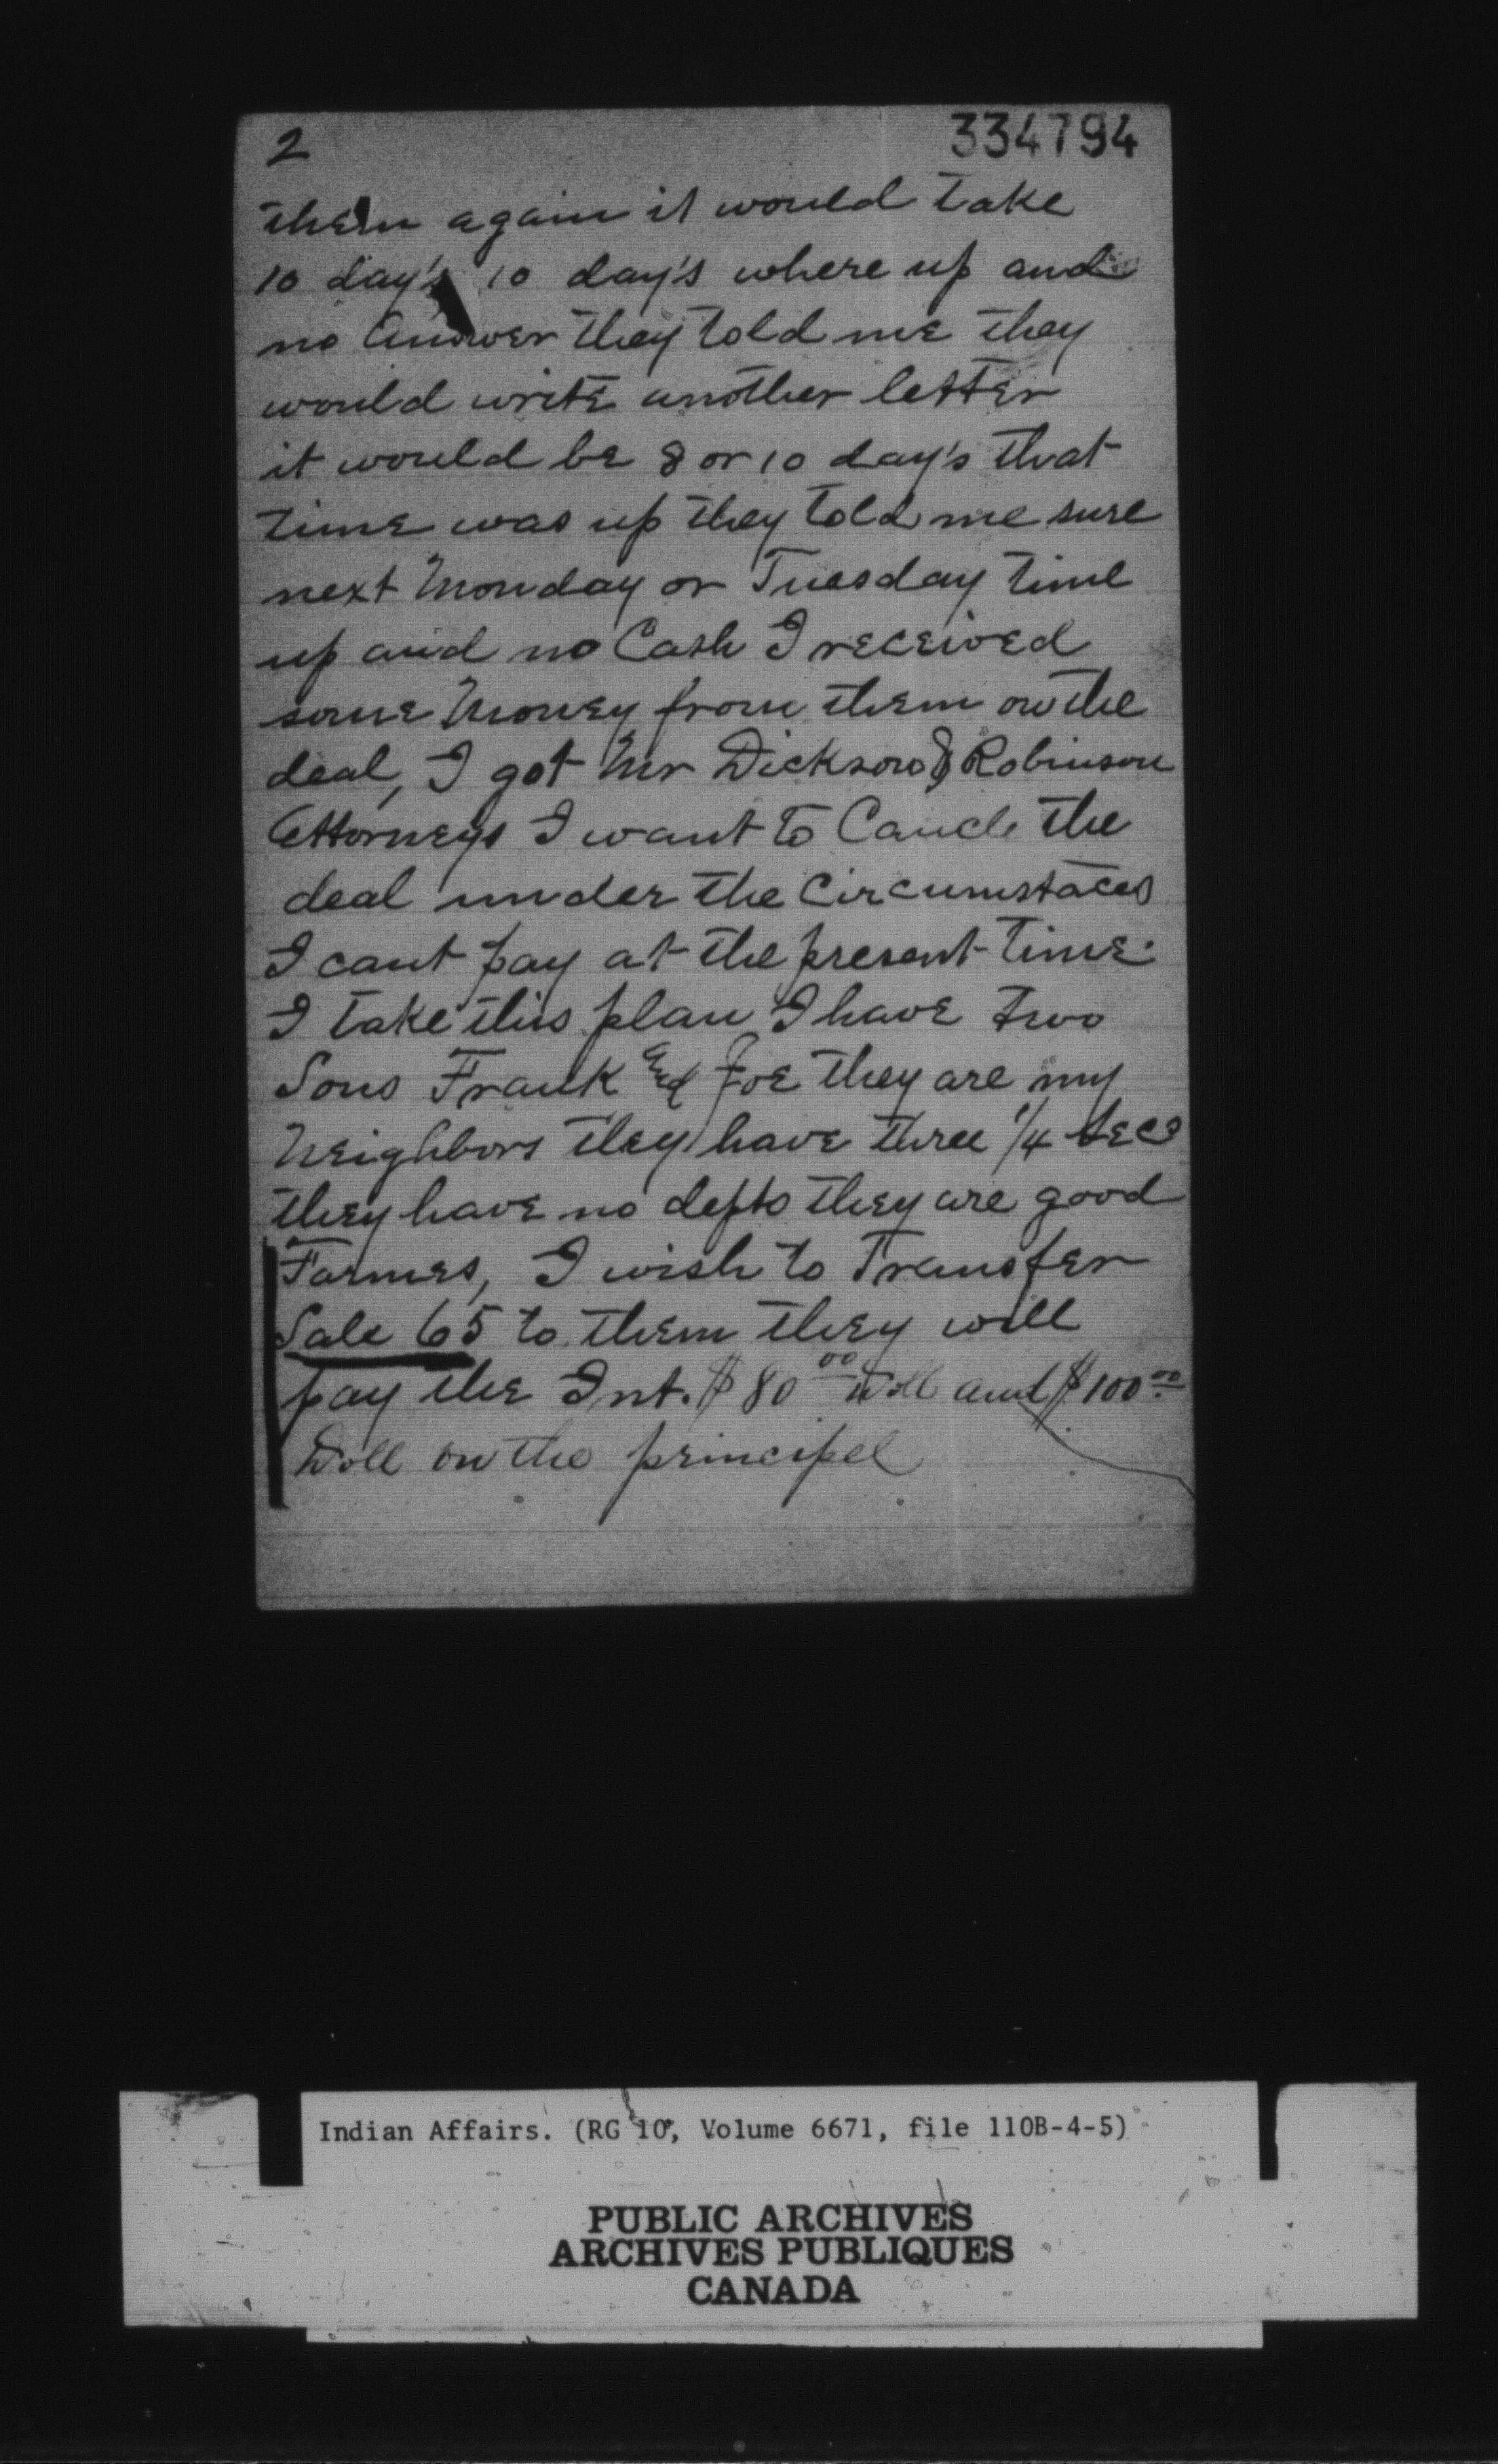 2
334794
them again it would take
10 day's 10 day's where up and
no answer they told me they
would write another letter
it would be 8 or 10 day's that
time was up they told me sure
next Monday or Tuesday time
up and no Cash I received
some Money from them on the
deal, I got Mr Dickson & Robinson
Attorneys I want to Cancle the
deal under the Circumstaces
I cant pay at the present time.
I take this plan I have two
Sons Frank and Joe they are my
Neighbors they have three 1/4 Secs
they have no depts they are good
Farmes, I wish to Transfer
Sale 65 to them they will
pay the Int. $80.00 Doll and $100.00
Doll on the principel
Indian Affairs. (RG 10, Volume 6671, file 110B-4-5)
PUBLIC ARCHIVES
ARCHIVES PUBLIQUES
CANADA